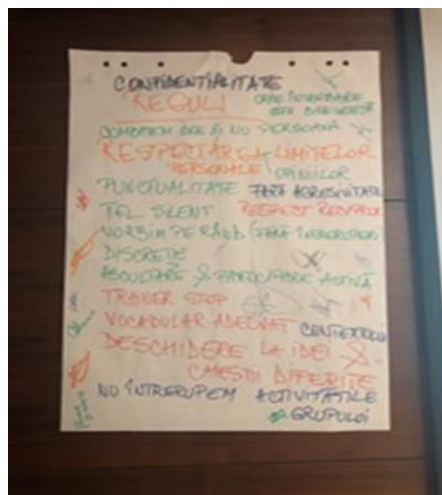 CONFIDENTIALITATE
REGULI
ORICE ÎNTREBARE
ESTE BINEVENITĂ
COMBATEM IDEE & NO PERSOANĂ
RESPECTAREA LIMITELOR
PERSONALE OPINIILOR
PUNCTUALITATE FĂRĂ AGRESIVITATE
TEL SILENT RESPECT RECIPROC
VORBIM PE RÂND (FĂRĂ ÎNTRERUPERI)
DISCREȚIE
ASCULTARE & PARTICIPARE ACTIVĂ
TRIGGER STOP
VOCABULAR ADECVAT CONTEXTULUI
DESCHIDERE LA IDEI &
CHESTII DIFERITE
NO ÎNTRERUPEM ACTIVITĂȚILE
GRUPULUI